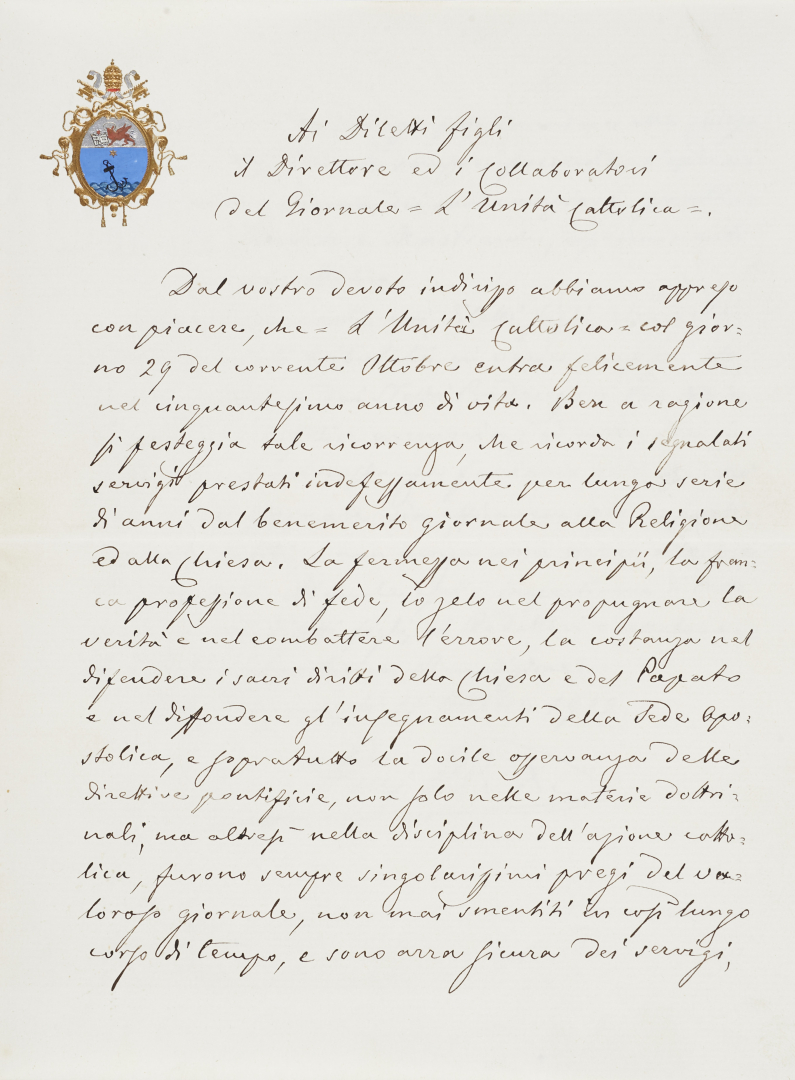 Ai Diletti figli
il Direttore ed i Collaboratori
del Giornale = L'Unità Cattolica =.
Dal vostro devoto indirizzo abbiamo appreso
con piacere, che = L'Unità Cattolica = col gior=
no 29 del corrente Ottobre entra felicemente
nel cinquantesimo anno di vita. Ben a ragione
si festeggia tale ricorrenza, che ricorda i segnalati
servigi prestati indefessamente per lunga serie
di anni dal benemerito giornale alla Religione
ed alla Chiesa. La fermezza nei principii, la fran=
ca professione di fede, lo zelo nel propugnare la
verità e nel combattere l'errore, la costanza nel
difendere i sacri diritti della Chiesa e del Papato
e nel diffondere gl'insegnamenti della Sede Apo=
stolica, e sopratutto la docile osservanza delle
direttive pontificie, non solo nelle materie dottri=
nali, ma altresì nella disciplina dell'azione catto=
lica, furono sempre singolarissimi pregi del va=
loroso giornale, non mai smentiti in così lungo
corso di tempo, e sono arra sicura dei servigi,